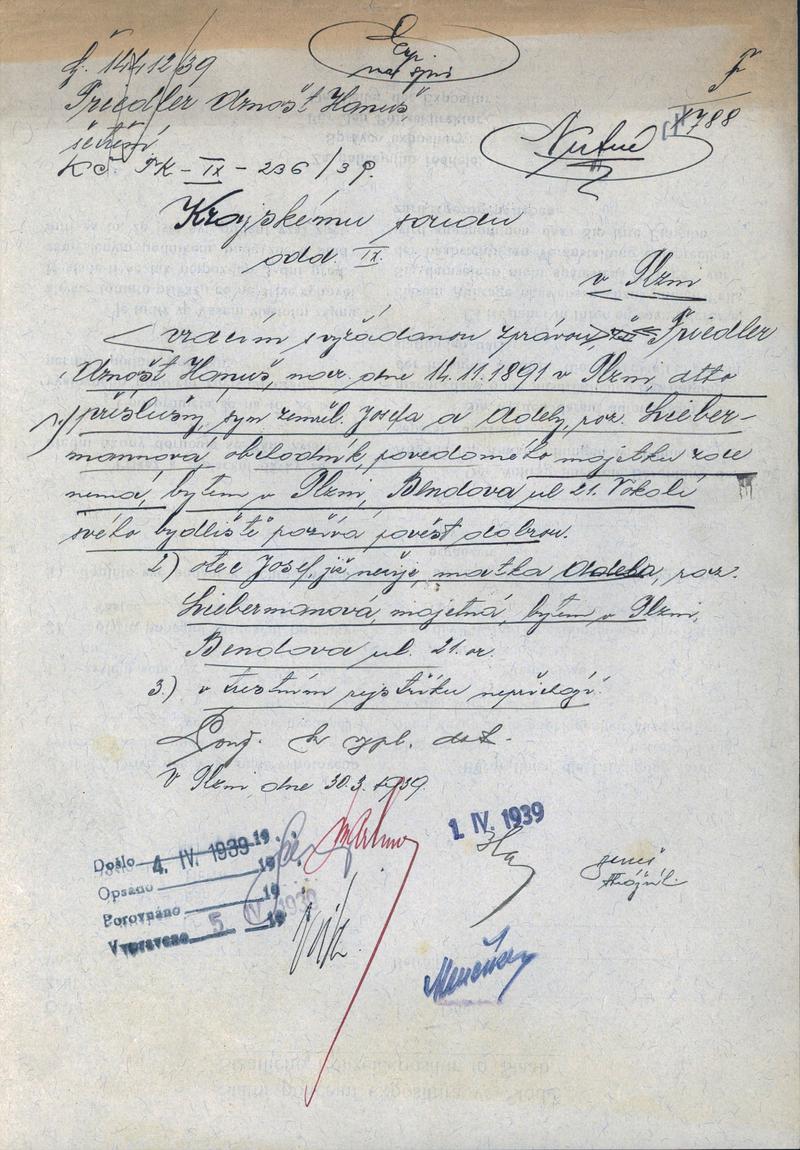 Exp.
F
Friedler Arnošt Hanuš
1788
šetření
Nutné
Kč Tk - IX - 236/39.
Krajskému soudu
odd. IX.
v Plzni
vracím s vyžádanou zprávou Friedler
Arnošt Hanuš, nar. dne 14.11.1891 v Plzni, dtto
1.) příslušný, syn zemřel. Josefa a Adely, roz. Lieber-
mannová, obchodník, povědomého majetku zde
nemá, bytem v Plzni, Bendova ul. 21. V okolí
svého bydliště požívá pověst dobrou.
2.) otec Josef, již nežije, matka Adela, roz.
Liebermanová, majetná, bytem v Plzni,
Bendova ul. 21.
3.) v trestním rejstříku nepřichází.
V Plzni, dne 30.3.1939.
1. IV. 1939
Došlo 4. IV. 1939 19
Opsáno 19
Porovnáno 19
Vypraveno 5 IV 1939 19